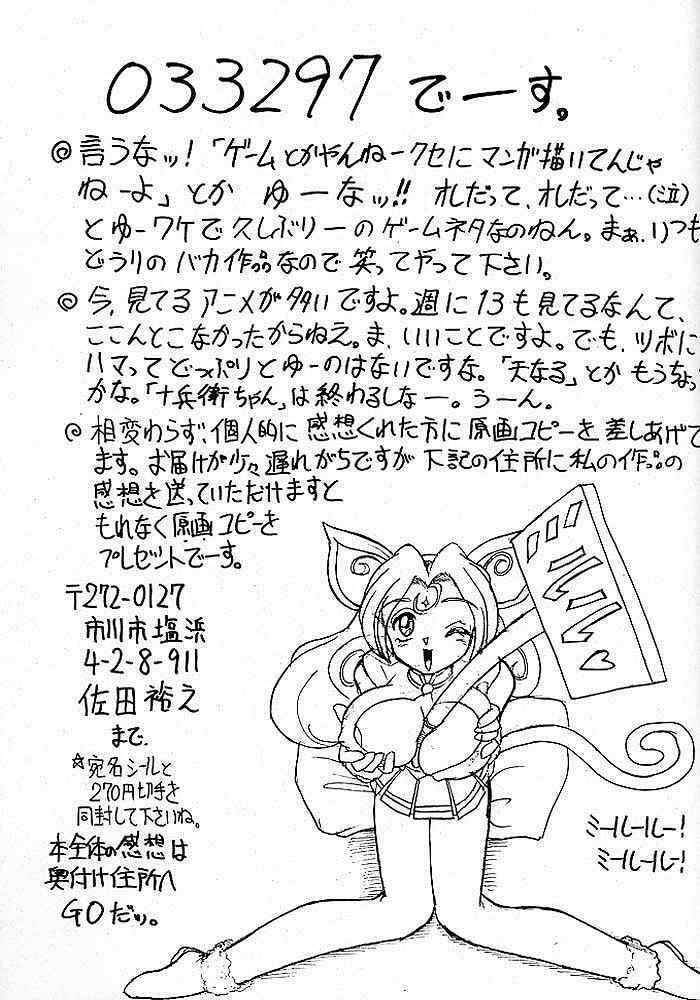 033297 でーす。
◎言うなッ!「ゲームとかやんねークセにマンガ描いてんじゃ
ねーよ」とか ゆーなッ!! オレだって、オレだって…(泣)
とゆーワケで久しぶりーのゲームネタなのねん。まぁ、いつも
どうりのバカ作品なので笑ってやって下さい。
◎今、見てるアニメが多いですよ。週に13も見てるなんて、
ここんとこなかったからねえ。ま、いいことですよ。でも、ツボに
ハマってどっぷりとゆーのはないですな。「天なる」とかもうちょい
かな。「十兵衛ちゃん」は終わるしなー。うーん。
◎相変わらず、個人的に感想くれた方に原画コピーを差しあげて
ます。お届けが少々遅れがちですが下記の住所に私の作品の
感想を送っていただけますと
もれなく原画コピーを
プレゼントでーす。
〒272-0127
市川市塩浜
4-2-8-911
佐田裕之
まで
☆宛名シールと
270円切手を
同封して下さいね。
本全体の感想は
奥付け住所へ
GOだッ。
ミールールー!
ミールールー!